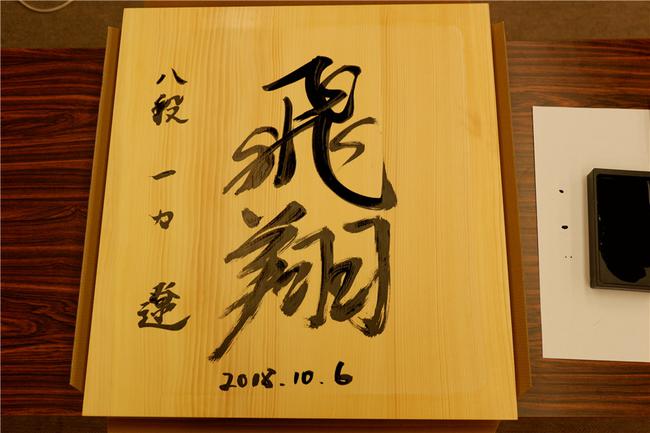 飛翔
八段 一力 遼
2018.10.6